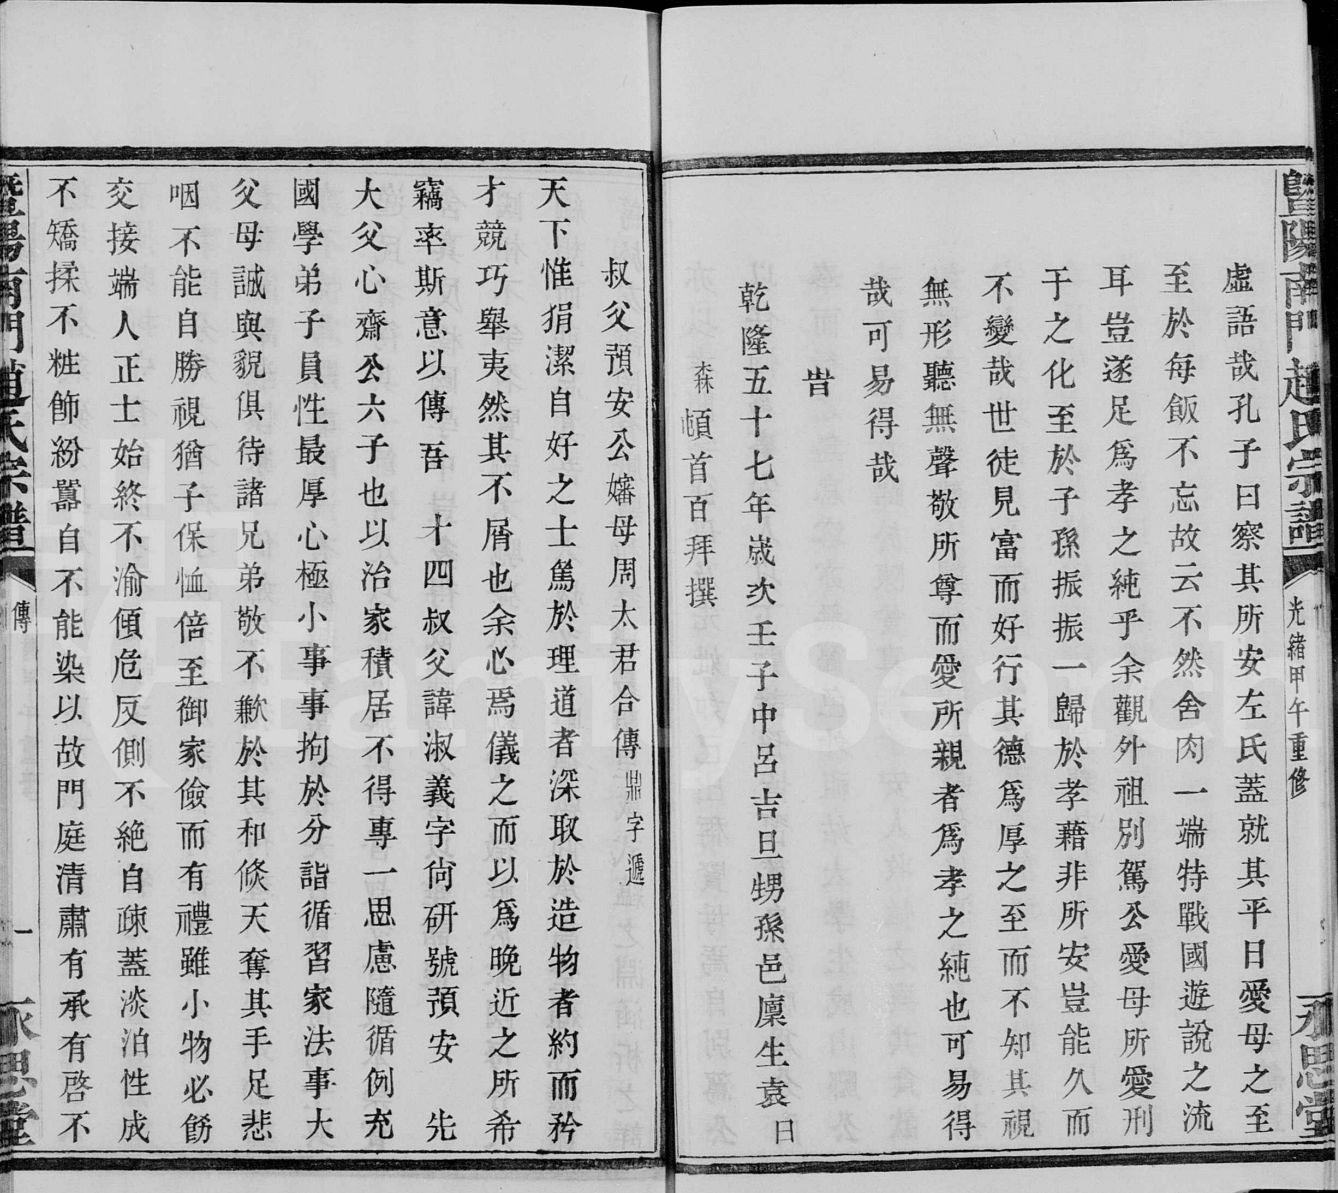 暨陽南門趙氏宗譜
光緒甲午重修
永思堂
虛語哉孔子曰察其所安左氏蓋就其平日愛母之至
至於每飯不忘故云不然舍肉一端特戰國遊說之流
耳豈遂足爲孝之純乎余觀外祖別駕公愛母所愛刑
于之化至於子孫振振一歸於孝藉非所安豈能久而
不變哉世徒見富而好行其德爲厚之至而不知其視
無形聽無聲敬所尊而愛所親者爲孝之純也可易得
哉可易得哉
旹
乾隆五十七年嵗次壬子中呂吉旦甥孫邑廩生袁日
森頓首百拜撰
叔父預安公嬸母周太君合傳鼎字遞
天下惟狷潔自好之士篤於理道者深取於造物者約而矜
才競巧舉夷然其不屑也余心焉儀之而以爲晚近之所希
竊率斯意以傳吾 十四叔父諱淑義字尙研號預安 先
大父心齋公六子也以治家積居不得專一思慮隨循例充
國學弟子員性最厚心極小事事拘於分詣循習家法事大
父母誠與貌俱待諸兄弟敬不歉於其和倐天奪其手足悲
咽不能自勝視猶子保恤倍至御家儉而有禮雖小物必餝
交接端人正士始終不渝傾危反側不絶自疎蓋淡泊性成
不矯揉不粧飾紛囂自不能染以故門庭清肅有承有啓不
暨陽南門趙氏宗譜
傳
一
永思堂
FamilySearch